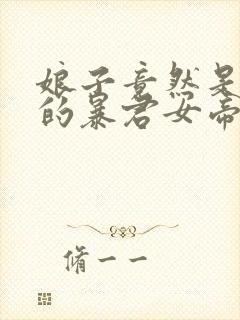 娘子竟然是
的暴君女帝
脩一一